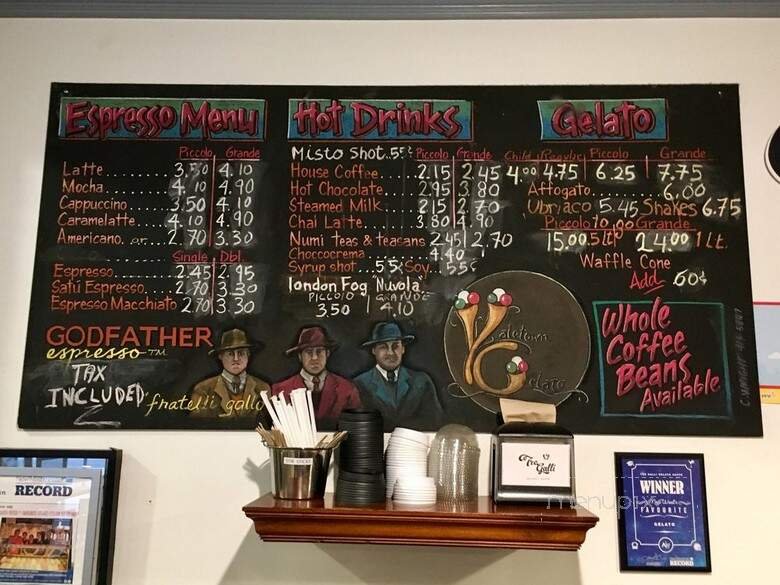 Espresso Menu
Piccolo Grande
Latte........ 3.50 4.10
Mocha........ 4.10 4.90
Cappuccino... 3.50 4.10
Caramelatte.. 4.10 4.90
Americano. 2.70 3.30
Single Dbl.
Espresso........ 2.45 2.95
Safu Espresso... 2.70 3.30
Espresso Macchiato 2.70 3.30
GODFATHER
espresso™
TAX
INCLUDED
fratelli gallo
Hot Drinks
Misto Shot .55¢ Piccolo Grande
House Coffee... 2.15 2.45
Hot Chocolate.. 2.95 3.80
Steamed Milk... 2.15 2.70
Chai Latte..... 3.80 4.90
Numi teas & teasans 2.45 2.70
Choccocrema..... 4.40
Syrup shot...55¢ Soy..55¢
london Fog "Nuvola"
PICCOLO GRANDE
3.50 4.10
Gelato
Child Regular Piccolo Grande
4.00 4.75 6.25 7.75
Affogato......... 6.00
Ubriaco 5.45 Shakes 6.75
Piccolo to go Grande
15.00 .5 Ltr 24.00 1 Lt.
Waffle Cone
Add 60¢
Gelato
Whole
Coffee
Beans
Available
Tre Galli
RECORD
WINNER
FAVOURITE
GELATO
RECORD
menupix